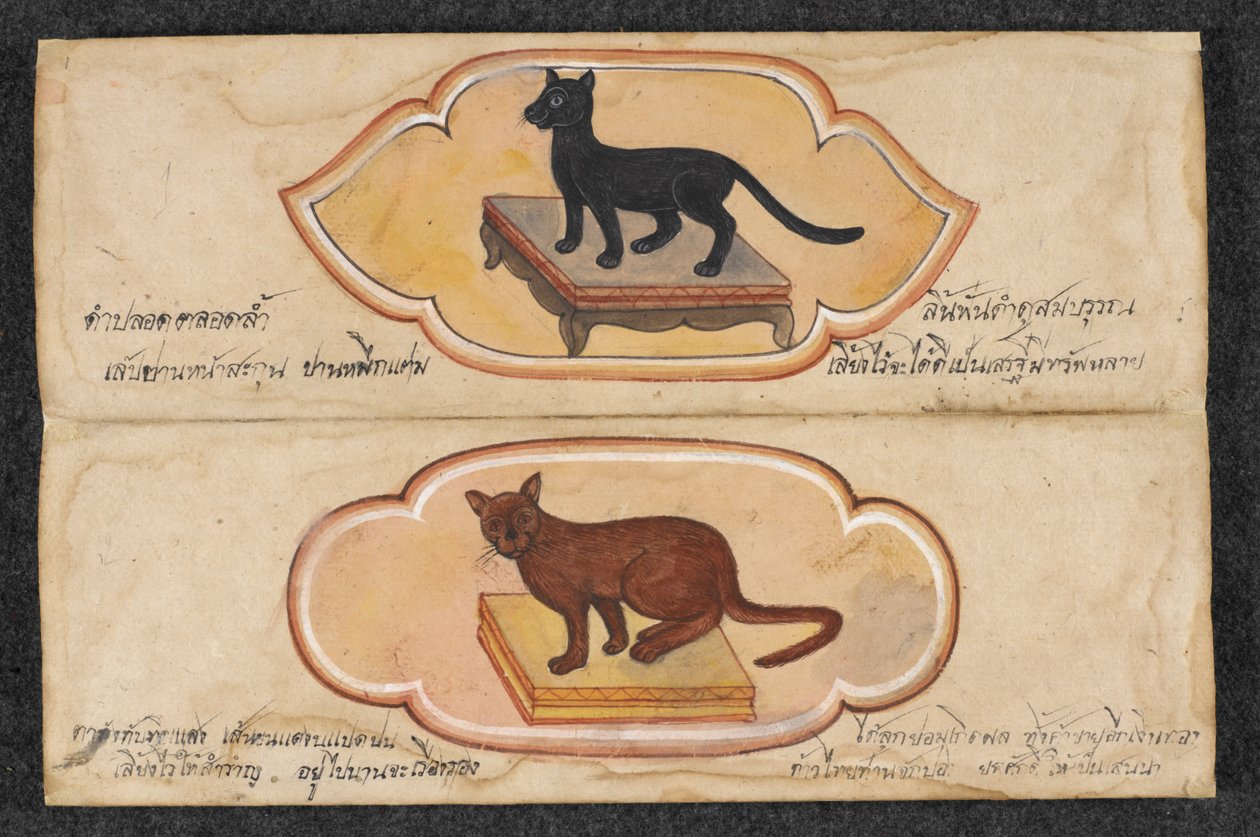 ดำปลอดตลอดล้ำ
ลิ้นฟันดำดุสมบรุรณ
เล้บปานหน้าสะกุน ปานหมึกแต่ม
เลี้ยงไว้จะได้ดีเป็นเสรฐีมีทรัพหลาย
เส้นขนแดง
ได้ลูกย่อมเกิดผล ทั้งค้าขายอีกเงินทอง
เลี้ยงไว้ให้สำราญ อยู่ไปนานจะเรืองรอง
ท้าวไทยท่าน ยศศักดิ์ให้เป็นเสนนา